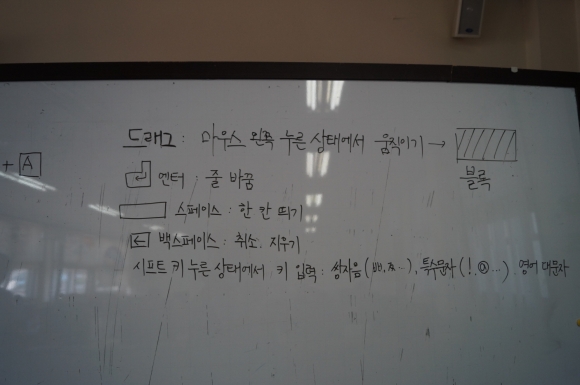 드래그: 마우스 왼쪽 누른 상태에서 움직이기 →
블록
+ A
엔터 : 줄 바꿈
스페이스 : 한 칸 띄기
← 백스페이스 : 취소. 지우기
시프트 키 누른 상태에서 키 입력 : 쌍자음 (ㅃ, ㅉ...), 특수문자 (! @ ...) 영어 대문자